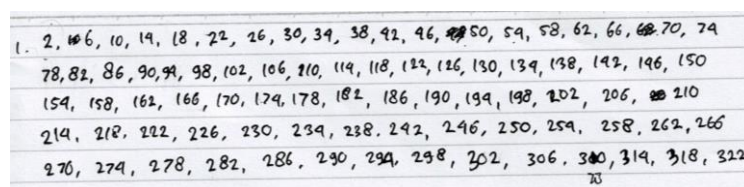 1. 2, 6, 10, 14, 18, 22, 26, 30, 34, 38, 42, 46, 50, 54, 58, 62, 66, 70, 74
78, 82, 86, 90, 94, 98, 102, 106, 110, 114, 118, 122, 126, 130, 134, 138, 142, 146, 150
154, 158, 162, 166, 170, 174, 178, 182, 186, 190, 194, 198, 202, 206, 210
214, 218, 222, 226, 230, 234, 238, 242, 246, 250, 254, 258, 262, 266
270, 274, 278, 282, 286, 290, 294, 298, 302, 306, 310, 314, 318, 322